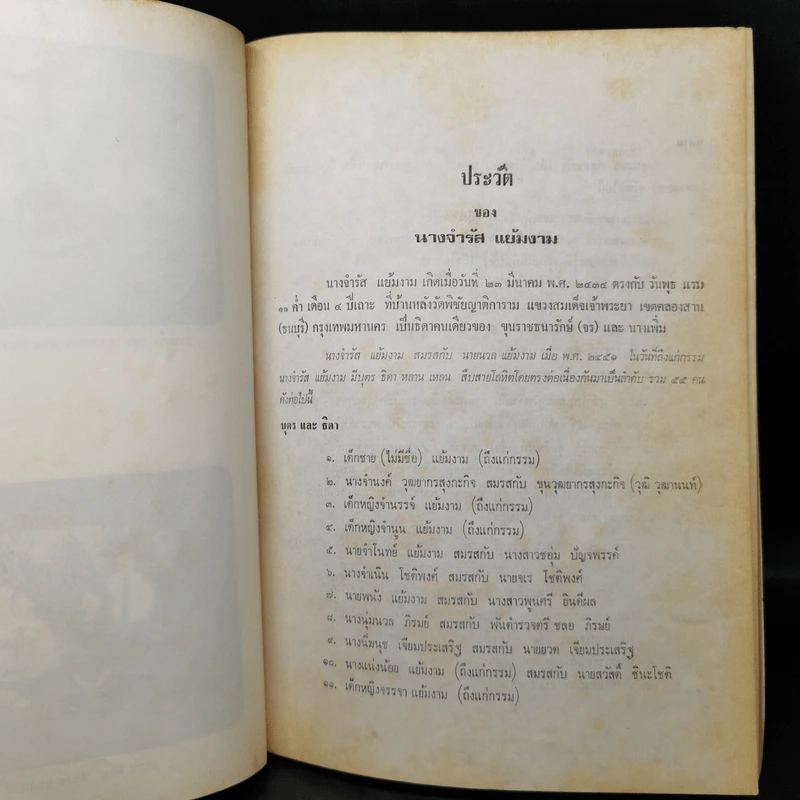 ประวัติ
ของ
นางจำรัส แย้มงาม
นางจำรัส แย้มงาม เกิดเมื่อวันที่ ๒๓ มีนาคม พ.ศ. ๒๔๓๔ ตรงกับ วันพุธ แรม
๑๑ ค่ำ เดือน ๔ ปีเถาะ ที่บ้านหลังวัดพิชัยญาติการาม แขวงสมเด็จเจ้าพระยา เขตคลองสาน
(ธนบุรี) กรุงเทพมหานคร เป็นธิดาคนเดียวของ ขุนราชธนารักษ์ (จร) และ นางเพิ่ม
นางจำรัส แย้มงาม สมรสกับ นายนวล แย้มงาม เมื่อ พ.ศ. ๒๔๕๑ ในวันที่ถึงแก่กรรม
นางจำรัส แย้มงาม มีบุตร ธิดา หลาน เหลน สืบสายโลหิตโดยตรงต่อเนื่องกันมาเป็นลำดับ รวม ๕๕ คน
ดังต่อไปนี้
บุตร และ ธิดา
๑. เด็กชาย (ไม่มีชื่อ) แย้มงาม (ถึงแก่กรรม)
๒. นางจำนงค์ วุฒยากรสุงกะกิจ สมรสกับ ขุนวุฒยากรสุงกะกิจ (วุฒิ วุฒานนท์)
๓. เด็กหญิงจำนรรจ์ แย้มงาม (ถึงแก่กรรม)
๔. เด็กหญิงจำนูน แย้มงาม (ถึงแก่กรรม)
๕. นายจำโนทย์ แย้มงาม สมรสกับ นางสาวชอุ่ม ปัญจพรรค์
๖. นางจำเนิน โชติพงศ์ สมรสกับ นายจเร โชติพงศ์
๗. นายพนัง แย้มงาม สมรสกับ นางสาวพูนศรี ยินดีผล
๘. นางนุ่มนวล ภิรมย์ สมรสกับ พันตำรวจตรี ชลอ ภิรมย์
๙. นางนิ่มนุช เจียมประเสริฐ สมรสกับ นายยวด เจียมประเสริฐ
๑๐. นางแน่งน้อย แย้มงาม (ถึงแก่กรรม) สมรสกับ นายสวัสดิ์ ชินะโชติ
๑๑. เด็กหญิงจรรจา แย้มงาม (ถึงแก่กรรม)